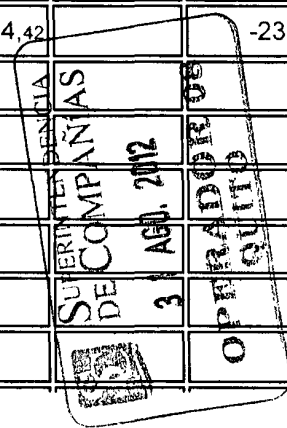 4,42
-23
SUPERINTENDENCIA
DE COMPAÑÍAS
3 AGO. 2012
OPERADOR 08
QUITO